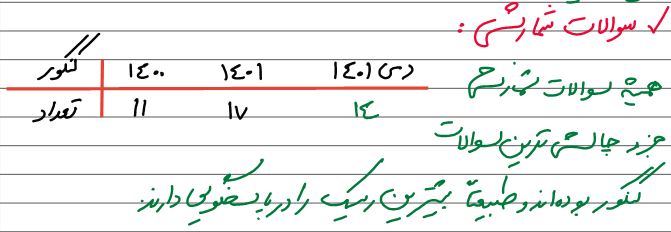 ✓ سوالات شمارشی :
کنکور | ۱۴۰۰ | ۱۴۰۱ | دی ۱۴۰۱
تعداد | ۱۱ | ۱۷ | ۱۴
همیشه سوالات شمارشی
جزء چالشی ترین سوالات
کنکور بوده‌اند و طبیعتاً بیشترین ریسک را در پاسخگویی دارند.